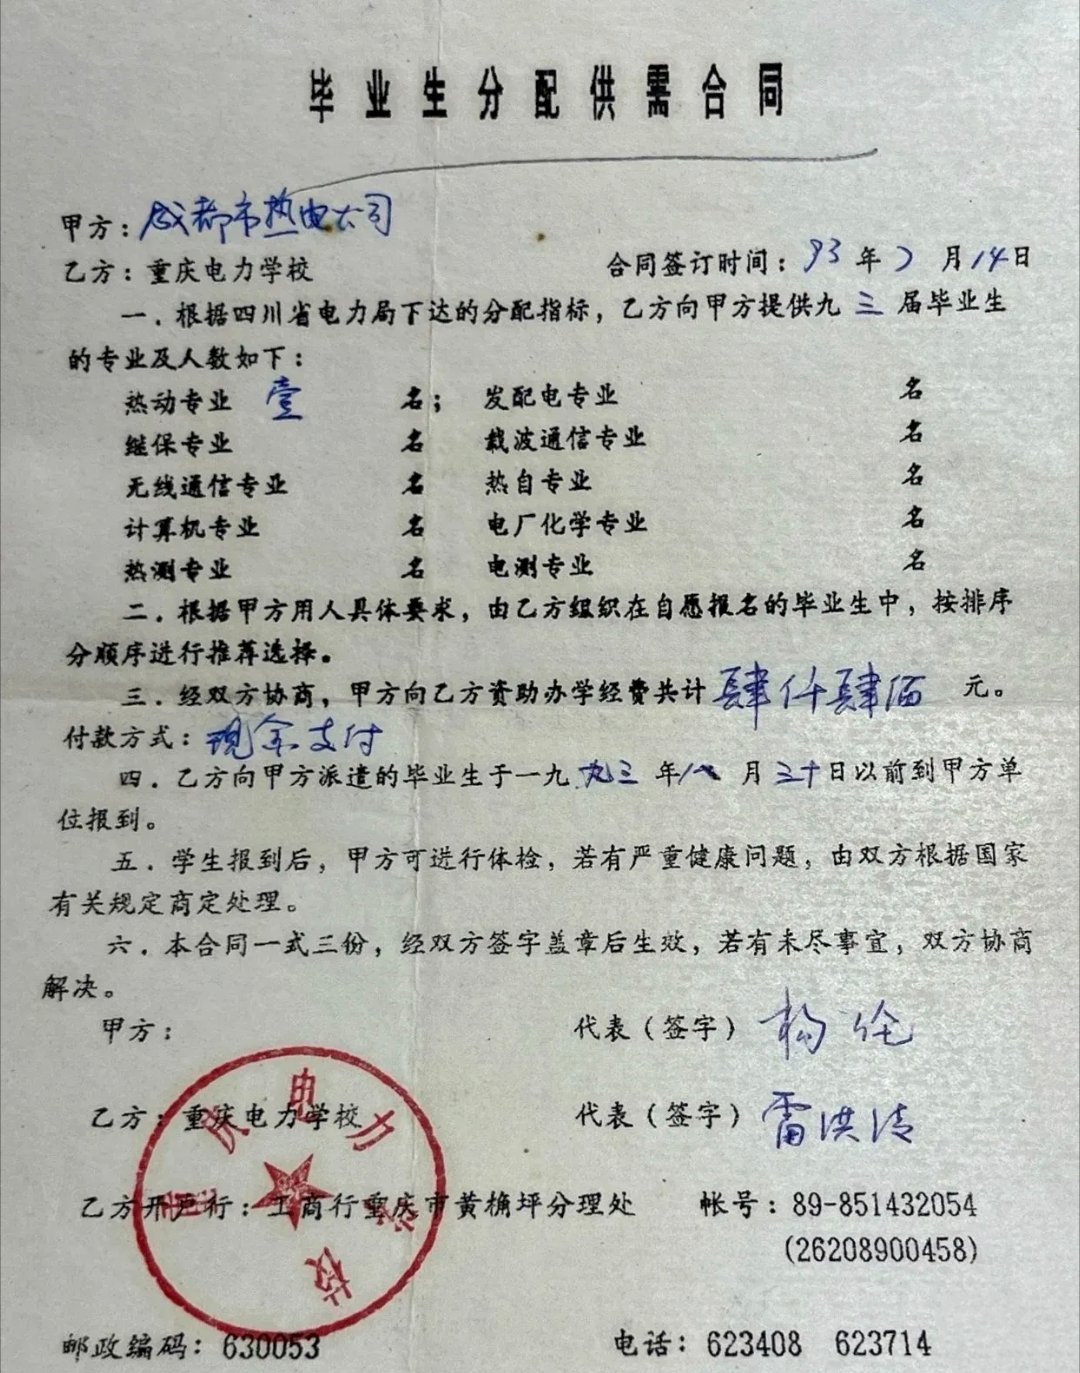 毕业生分配供需合同
甲方：成都市热电公司
乙方：重庆电力学校 合同签订时间：93年7月14日
一．根据四川省电力局下达的分配指标，乙方向甲方提供九三届毕业生
的专业及人数如下：
热动专业 壹 名； 发配电专业 名
继保专业 名 载波通信专业 名
无线通信专业 名 热自专业 名
计算机专业 名 电厂化学专业 名
热测专业 名 电测专业 名
二．根据甲方用人具体要求，由乙方组织在自愿报名的毕业生中，按排序
分顺序进行推荐选择。
三．经双方协商，甲方向乙方资助办学经费共计肆仟肆佰 元。
付款方式：现金支付
四．乙方向甲方派遣的毕业生于一九九三年八月三十日以前到甲方单
位报到。
五．学生报到后，甲方可进行体检，若有严重健康问题，由双方根据国家
有关规定商定处理。
六．本合同一式三份，经双方签字盖章后生效，若有未尽事宜，双方协商
解决。
甲方： 代表（签字）杨伦
乙方：重庆电力学校 代表（签字）雷洪清
重庆电力学校
乙方开户行：工商行重庆市黄桷坪分理处 帐号：89-851432054
(26208900458)
邮政编码：630053 电话：623408 623714